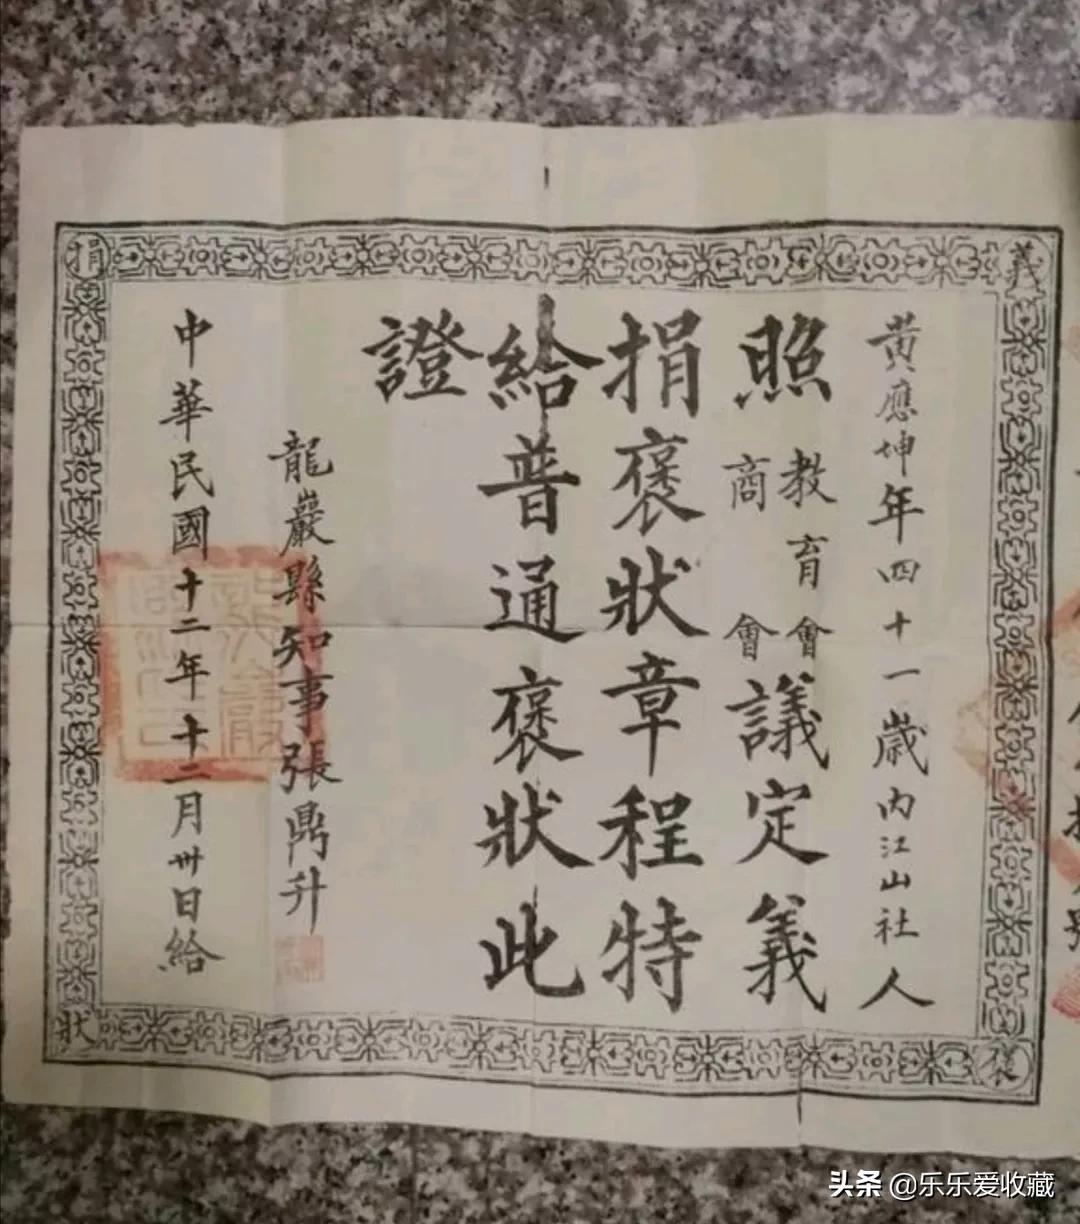 義捐褒狀
黃應坤年四十一歲內江山社人
照教育會商會議定義
捐褒狀章程特
給普通褒狀此
證
龍巖縣知事張鼎升
中華民國十二年十二月卅日給
头条 @乐乐爱收藏